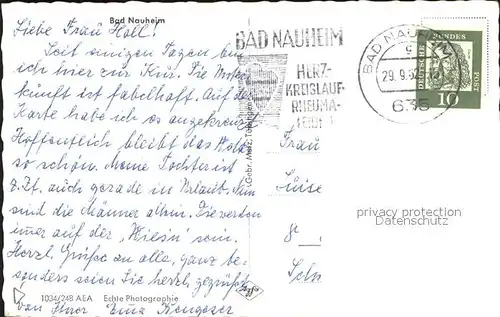 Bad Nauheim
Liebe Frau Holl!
Seit einigen Tagen bin
ich hier zur Kur. Die Unter-
kunft ist fabelhaft. Auf der
Karte habe ich es angekreuzt.
Hoffentlich bleibt das Wetter
so schön. Meine Tochter ist
z. Zt. auch gerade in Urlaub. Nun
sind die Männer allein. Sie werden
immer auf der "Wies'n" sein.
Herzl. Grüße an alle, ganz be-
sonders seien Sie herzl. gegrüßt
von Ihrer Erna
1034/248 AEA Echte Photographie
Gebr. Metz, Tübingen
BAD NAUHEIM
HERZ-
KREISLAUF-
RHEUMA-
BAD NAUHEIM
c
29.9.62
635
DEUTSCHE BUNDESPOST
10
Frau
Luise
privacy protection
Datenschutz